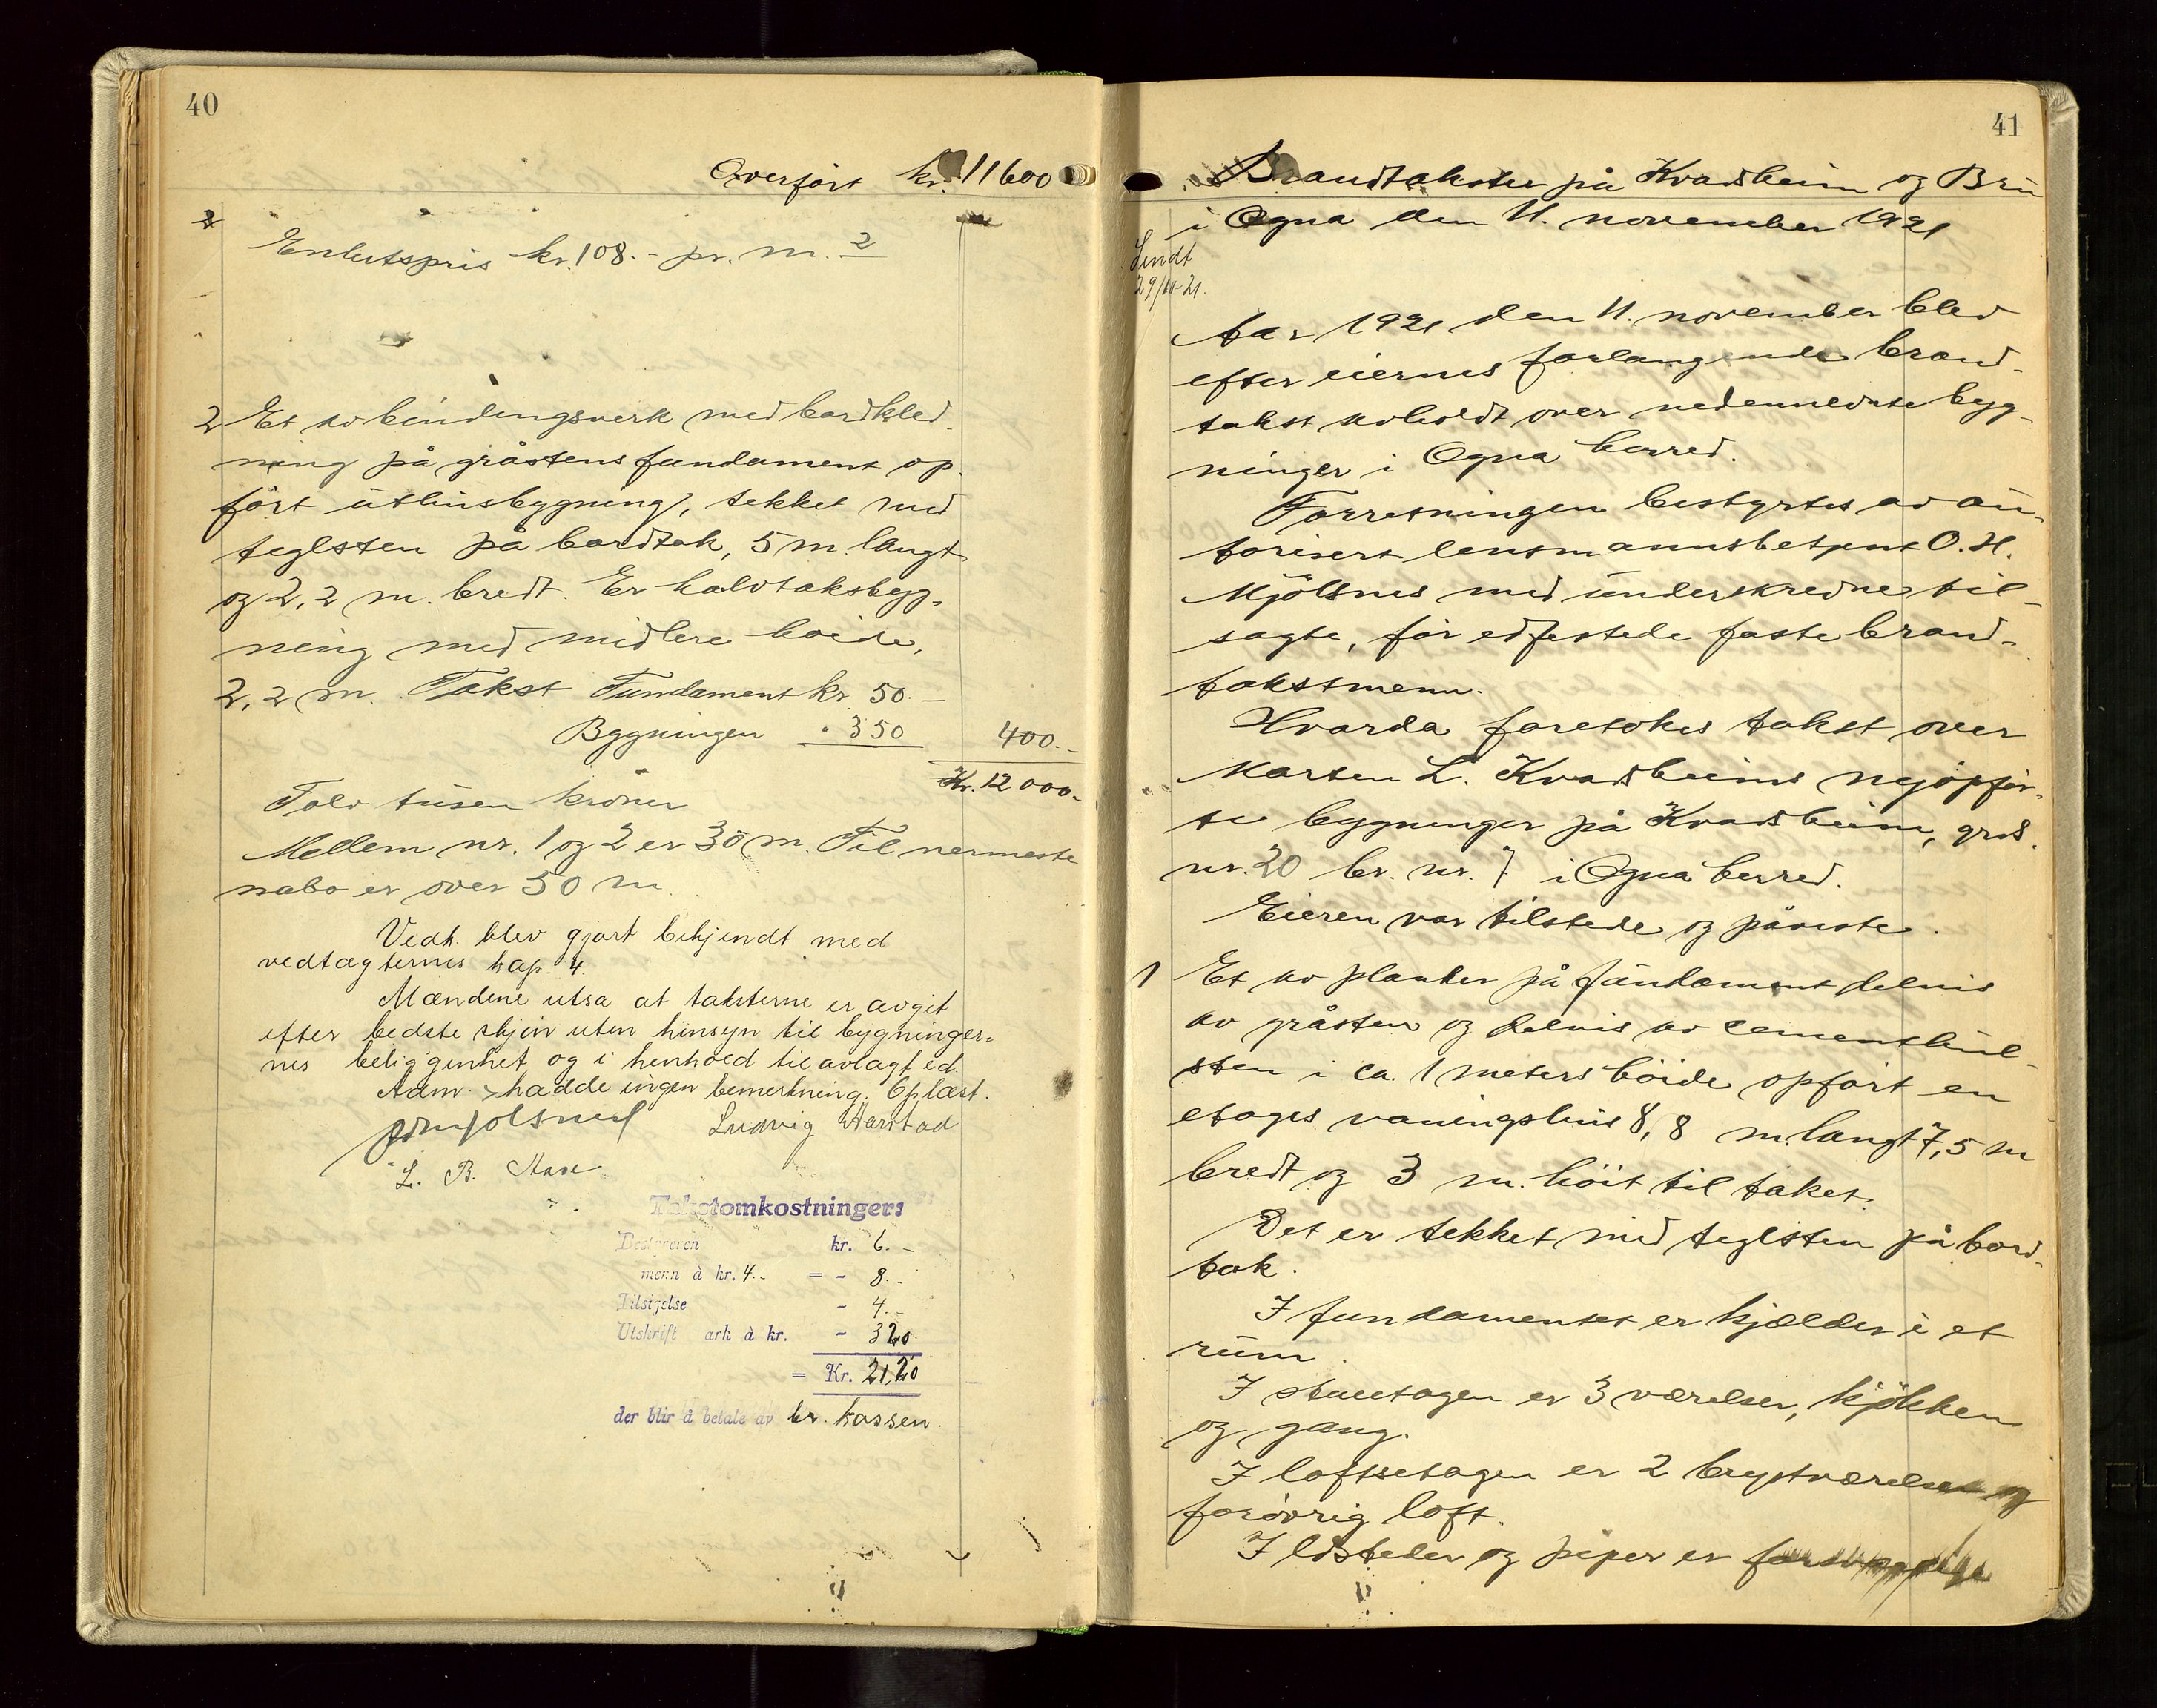 40
Overført kr. 11600
Enhetspris kr. 108.- pr. m. 2
2 Et av bindingsverk med bordkled-
ning på gråstens fundament op-
ført uthusbygning, tekket med
teglsten på bordtak, 5 m. langt
og 2,2 m. bredt. Er halvtaksbyg-
ning med midlere høide,
2,2 m. Takst Fundament kr. 50.-
Bygningen " 350 400.-
Kr. 12000.-
Tolv tusen kroner
Mellem nr. 1 og 2 er 30 m. Til nermeste
nabo er over 50 m.
Vedk. blev gjort bekjendt med
vedtægternes kap. 4.
Mændene utsa at taksterne er avgit
efter bedste skjön uten hinsyn til bygninger-
nes beliggenhet og i henhold til avlagt ed.
Adm. hadde ingen bemerkning. Oplæst.
Ludvig Aarstad
L. B.
Takstomkostninger:
Bestyreren kr. 6.-
menn à kr. 4.- = - 8.-
Tilsigelse - 4.-
Utskrift ark à kr. - 3 20
= Kr. 21,20
der blir å betale av br. kassen.
41
Brandtakster på Kvadsheim og Bru
i Ogna den 11. november 1921
Sendt
29/11-21.
Aar 1921 den 11. november blev
efter eiernes forlangende brand-
takst avholdt over nedennevnte byg-
ninger i Ogna herred.
Forretningen bestyrtes av au-
torisert lensmannsbetjent O. H.
Mjølsnes med underskredne til-
sagte, før edfestede faste brand-
takstmenn.
Hvorda foretokes takst over
Morten L. Kvadsheims nyopfør-
te bygninger på Kvadsheim, grds.
nr. 20 br. nr. 7 i Ogna herred.
Eieren var tilstede og påviste.
1 Et av planker på fundament delvis
av gråsten og delvis av cementhul-
sten i ca. 1 meters høide opført en
etages vaningshus 8,8 m. langt 7,5 m
bredt og 3 m. høit til taket.
Det er tekket med teglsten på bord-
tak.
I fundamentet er kjælder i et
rum.
I stuetagen er 3 værelser, kjøkken
og gang.
I loftsetagen er 2 brystværelser og
forøvrig loft.
Ildsteder og piper er